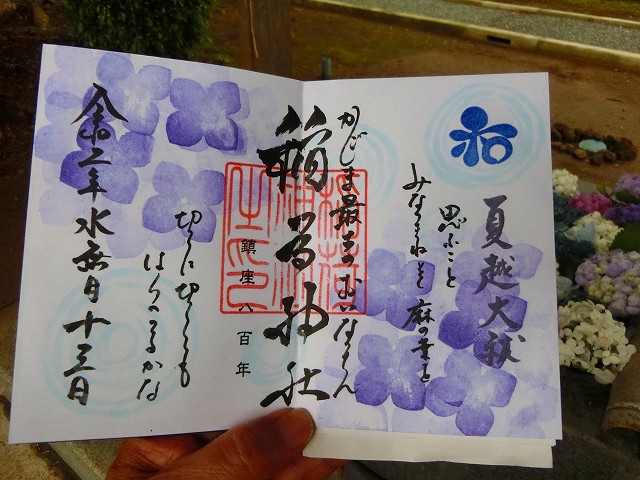 夏越大祓
思ふこと
みなつきねとて
麻の葉を
かしま最古のおいなさん
稲荷神社
鎮座八百年
切りに切りても
はらへつるかな
令和二年水無月十三日